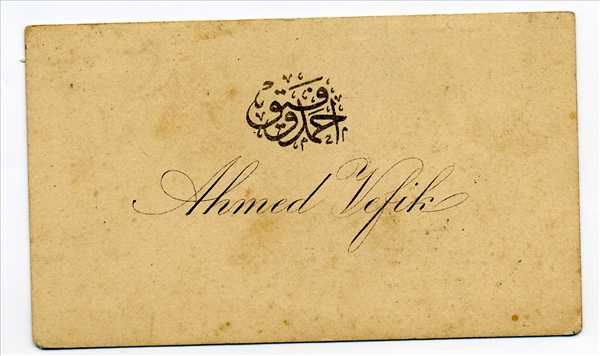 احمد وفيق
Ahmed Vefik